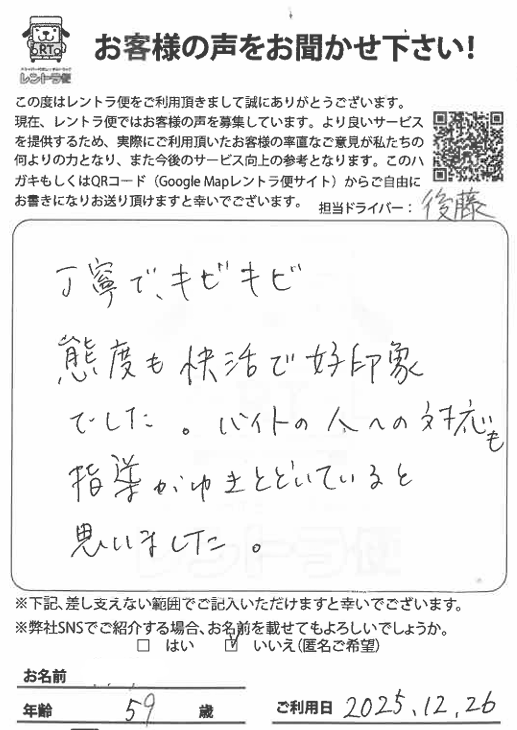 RT
レントラ便
お客様の声をお聞かせ下さい!
この度はレントラ便をご利用頂きまして誠にありがとうございます。
現在、レントラ便ではお客様の声を募集しています。より良いサービス
を提供するため、実際にご利用頂いたお客様の率直なご意見が私たちの
何よりの力となり、また今後のサービス向上の参考となります。このハ
ガキもしくはQRコード（Google Mapレントラ便サイト）からご自由に
お書きになりお送り頂けますと幸いでございます。 担当ドライバー：後藤
丁寧で、キビキビ
態度も快活で好印象
でした。バイトの人への対応も
指導がゆきとどいていると
思いました。
※下記、差し支えない範囲でご記入いただけますと幸いでございます。
※弊社SNSでご紹介する場合、お名前を載せてもよろしいでしょうか。
□ はい ☑ いいえ(匿名ご希望)
お名前
年齢 59 歳 ご利用日 2025.12.26